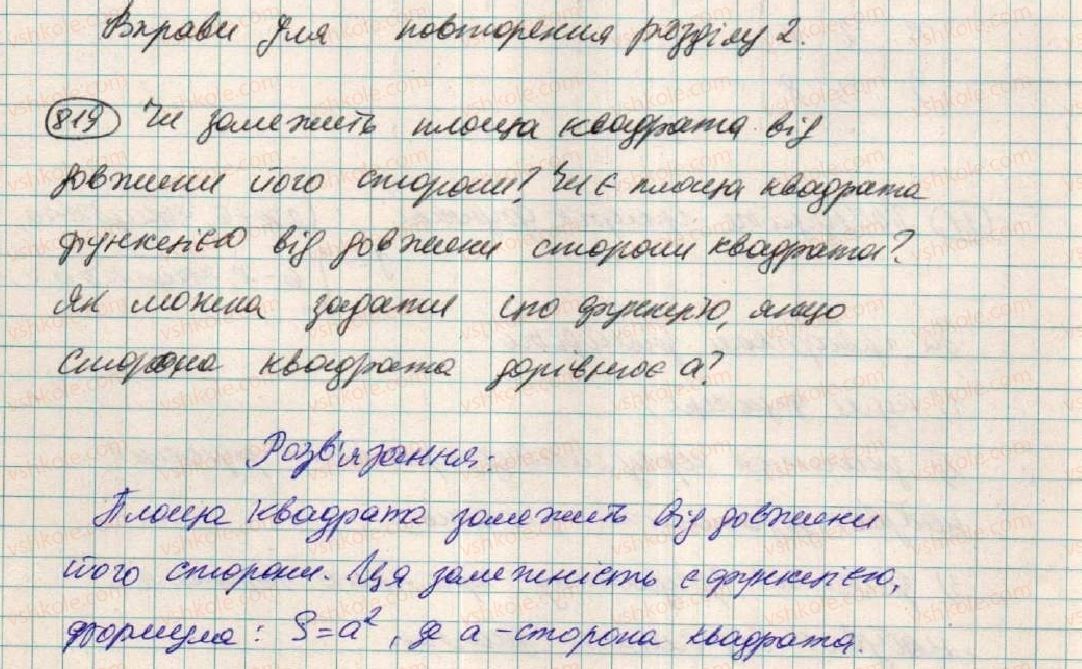 Вправи для повторення розділу 2.
819 Чи залежить площа квадрата від
довжини його сторони? Чи є площа квадрата
функцією від довжини сторони квадрата?
Як можна задати цю функцію, якщо
сторона квадрата дорівнює a?
Розв'язання:
Площа квадрата залежить від довжини
його сторони. Ця залежність є функцією,
формула: S=a², де a - сторона квадрата.